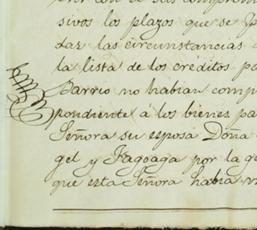 con su compromi
sivos los plazos que se
dar las circunstancias
la lista de los créditos pa
Barrio no habian comp
pondiente á los bienes pa
Señora su esposa Doña
gel y Fagoaga por la qe
que esta Señora habia